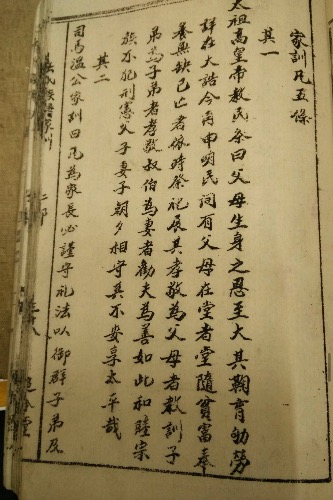 家訓凡五條
其一
太祖高皇帝教民条曰父母生身之恩至大其鞠育劬勞
詳在大誥今再申明民间有父母在堂者堂隨貧富奉
養無缺已亡者依時祭祀展其孝敬為父母者教訓子
弟為子弟者孝敬叔伯為妻者勸夫為善如此和睦宗
族不犯刑憲父子妻子朝夕相守莫不安享太平哉
其二
司馬温公家訓曰凡為家長必謹守礼法以御群子弟及